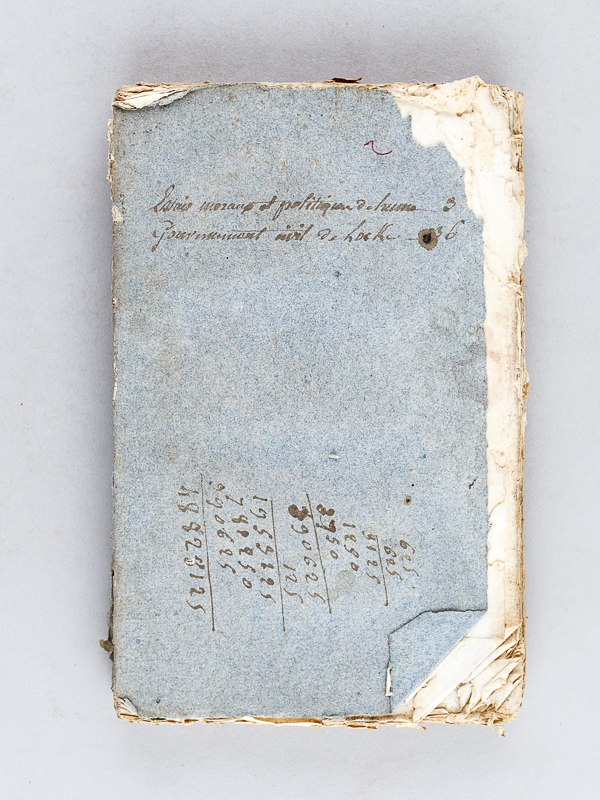 2
Essais moraux et politiques de hume 3
Gouvernement civil de Locke 36
625
625
3125
1250
3750
390625
125
1953125
781250
390625
48828125